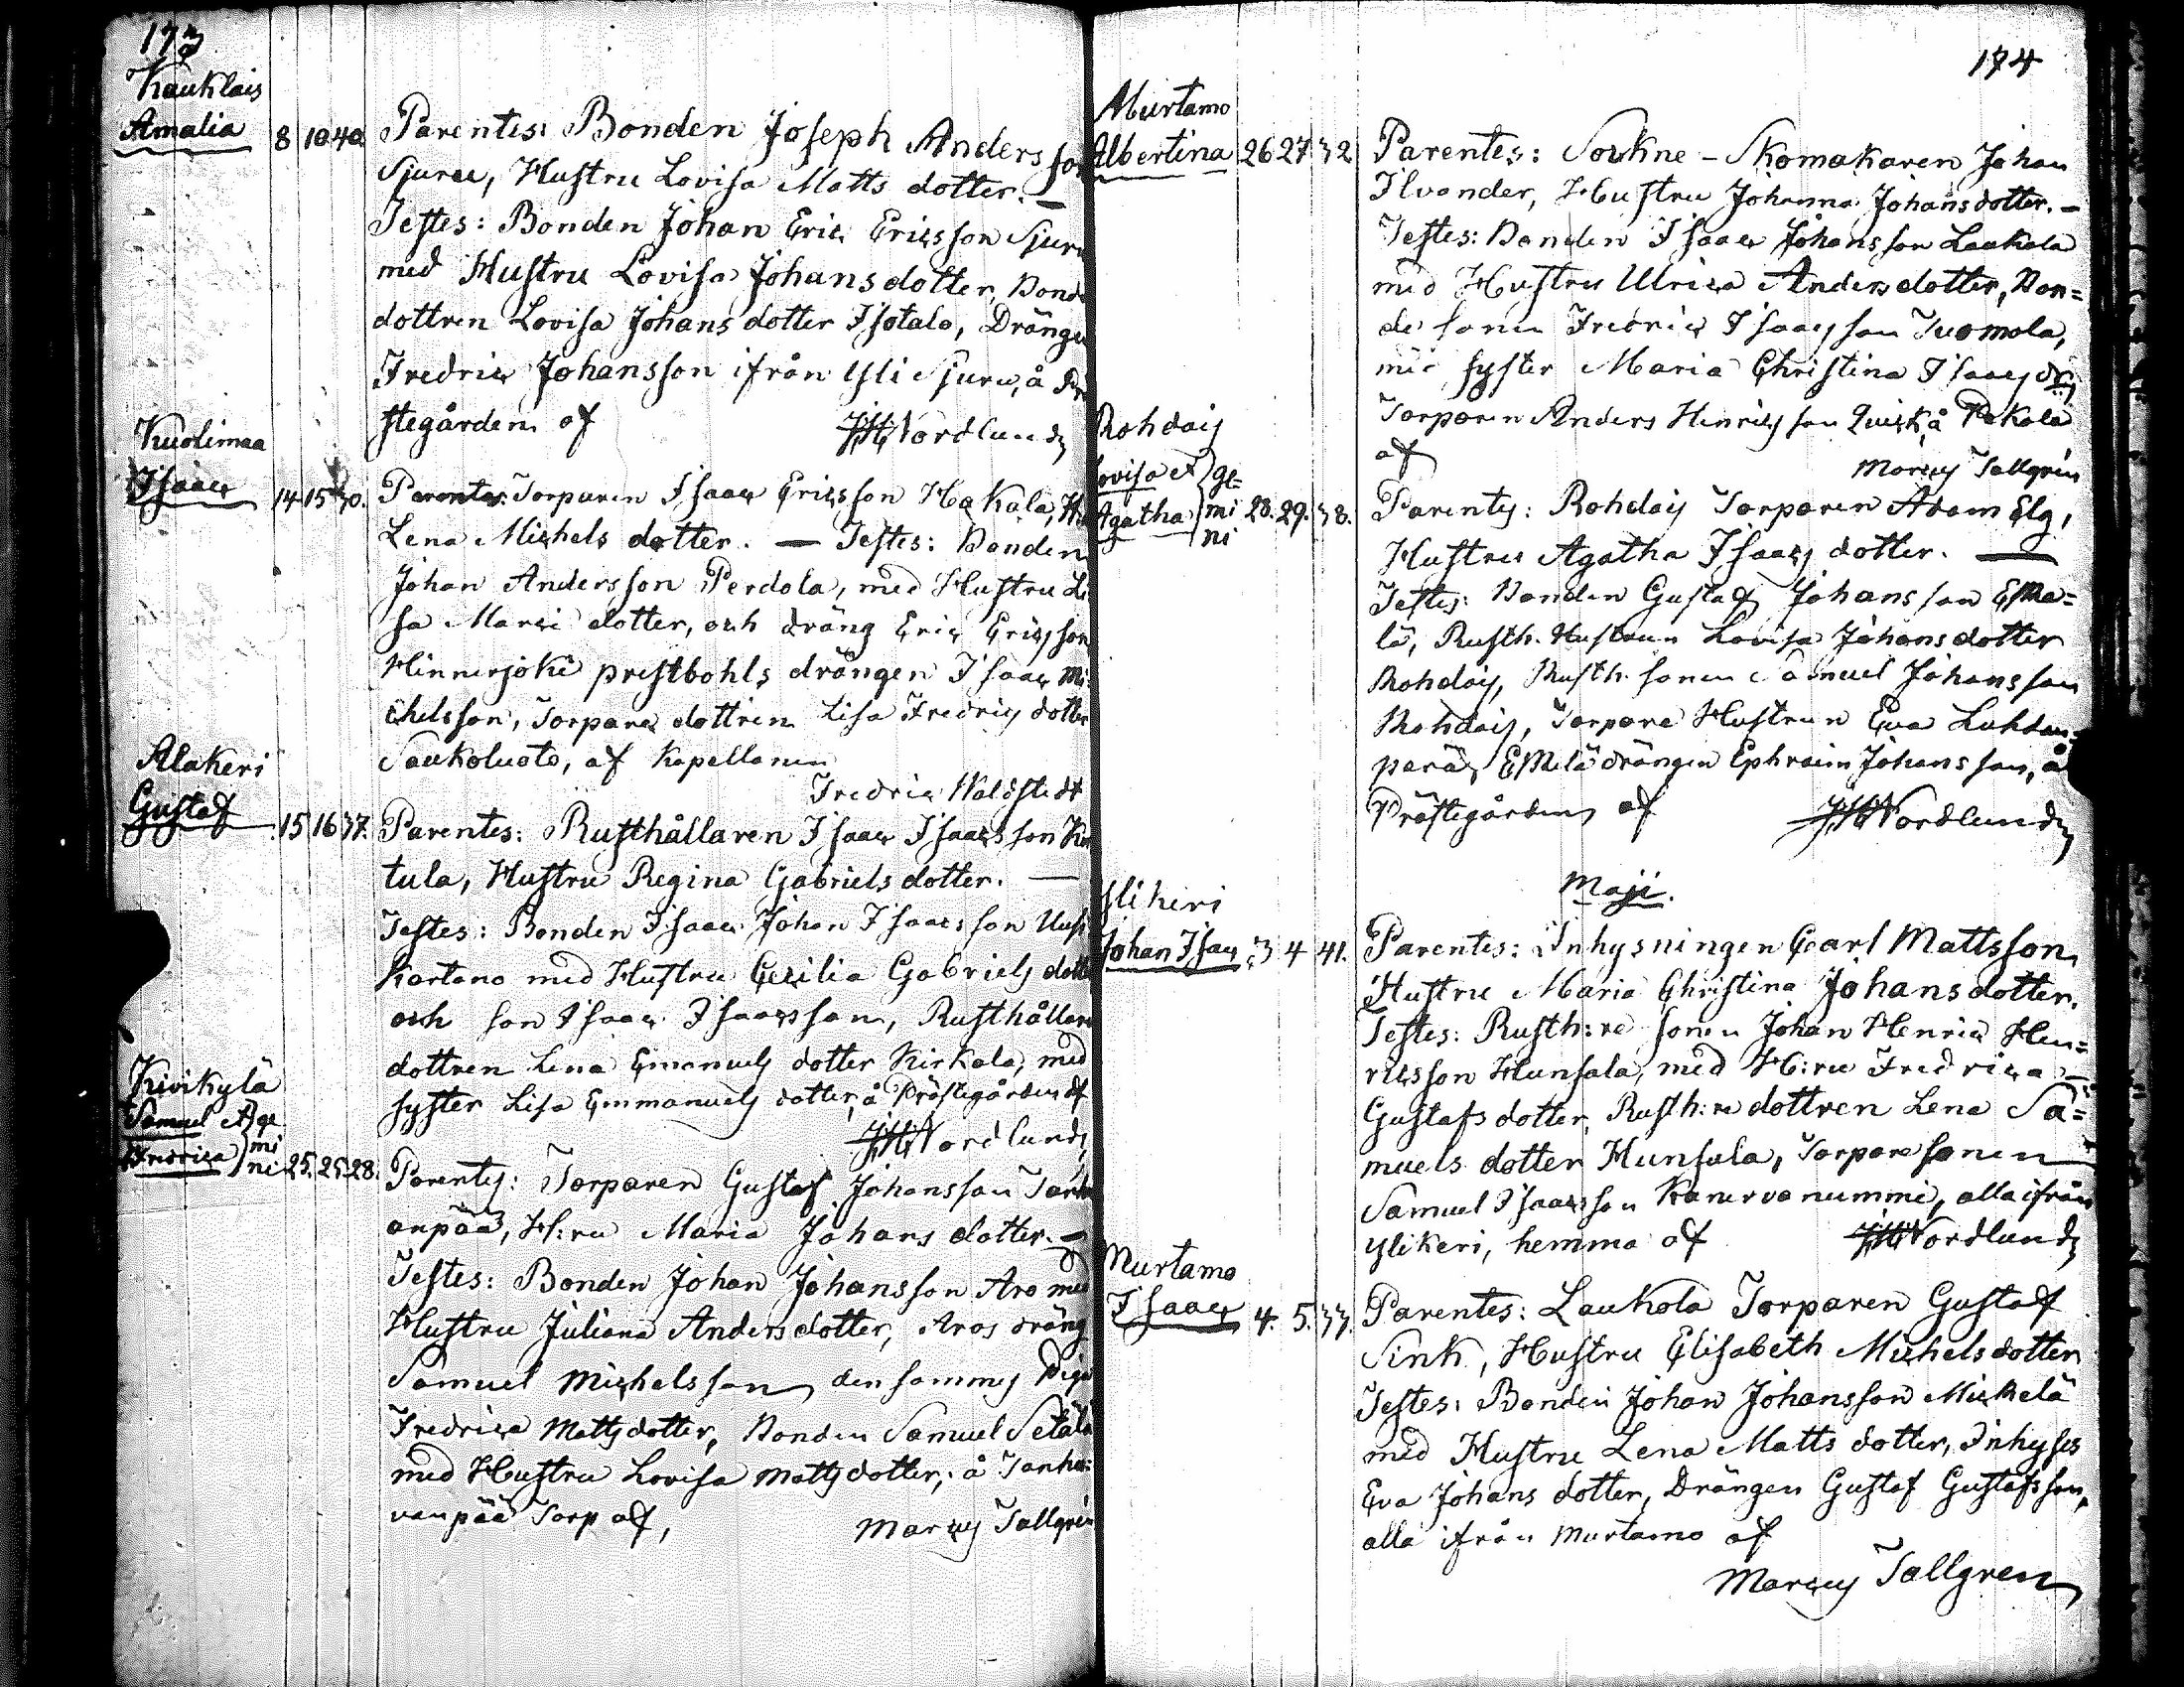 173
Kauklais
Amalia 8 10 40. Parentes: Bonden Joseph Andersson
Sjuru, Hustru Lovisa Matts dotter. —
Testes: Bonden Johan Eric Ericsson Sjuru
med Hustru Lovisa Johans dotter, Bonde
dottren Lovisa Johans dotter Isotalo, Drängen
Fredric Johansson ifrån Yli Sjuru, å Pre
stegården af JHNordlund
Kuolimaa
Isaac 14 15 30. Parentes: Torparen Isaac Ericsson Hakala, H:u
Lena Michels dotter. — Testes: Bonden
Johan Andersson Perdola, med Hustru Li
sa Marci dotter, och dräng Eric Ericsson
Hinnerjoki prestbohls drängen Isaac Mi
chelsson, Torpare dottren Lisa Fredrics dotter
Saukoluoto, af Kapellanen
Fredric Waldstedt
Alakeri
Gustaf 15 16 37. Parentes: Rusthållaren Isaac Isaacsson
tula, Hustru Regina Gabriels dotter. —
Testes: Bonden Isaac Johan Isaacsson Uusi
Kartano med Hustru Cecilia Gabriels dotter
och son Isaac Isaacsson, Rusthållare
dottren Lena Emanuels dotter Kirkola, med
syster Lisa Emmanuels dotter, å Prästegården af
JHNordlund
Kivikylä
Samuel et ge
Fredrica mi
ni 25. 25 28. Parentes: Torparen Gustaf Johansson Tanhu
anpää, H:ru Maria Johans dotter. —
Testes: Bonden Johan Johansson Aro med
Hustru Juliana Anders dotter, Aros dräng
Samuel Michelsson, den sammes Piga
Fredrica Mattsdotter, Bonden Samuel Setälä
med Hustru Lovisa Mattsdotter, å Tanhu:
vanpää Torp af, Marcus Tallgren
174
Murtamo
Albertina 26 27 32 Parentes: Sockne-Skomakaren Johan
Ilvander, Hustru Johanna Johansdotter. —
Testes: Bonden Isaac Johansson Laukola
med Hustru Ulrica Anders dotter, Bon=
de sonen Fredric Isaacsson Tuomola,
med syster Maria Christina Isaacs dr,
Torparen Anders Henricsson Quick, å Pakola
af Marcus Tallgren
Rohdais
Lovisa et ge
Agatha mi
ni 28. 29. 38. Parentes: Rohdais Torparen Adam Elg,
Hustru Agatha Isaacs dotter. —
Testes: Bonden Gustaf Johansson EMe=
lä, Rusth. Hustrun Lovisa Johansdotter
Rohdais, Rusth. sonen Samuel Johansson
Rohdais, Torpare Hustrun Eva Luhdan=
perä, EMelä drängen Ephraim Johansson, å
Prästegården af JHNordlund
Maji.
Ylikeri
Johan Isac 3 4 41. Parentes: Inhysningen Carl Mattsson,
Hustru Maria Christina Johansdotter.
Testes: Rusth:re sonen Johan Henric Hen=
ricsson Hunsala, med H:ru Fredrica
Gustafs dotter, Rusth:re dottren Lena Sa=
muels dotter Hunsala, Torpare sonen
Samuel Isaacsson Kanervanummi, alla ifrån
Ylikeri, hemma af JHNordlund
Murtamo
Isaac 4. 5. 33. Parentes: Laukola Torparen Gustaf
Sink, Hustru Elisabeth Michelsdotter
Testes: Bonden Johan Johansson Mickelä
med Hustru Lena Matts dotter, Inhyses
Eva Johans dotter, Drängen Gustaf Gustafsson,
alla ifrån Murtamo af
Marcus Tallgren